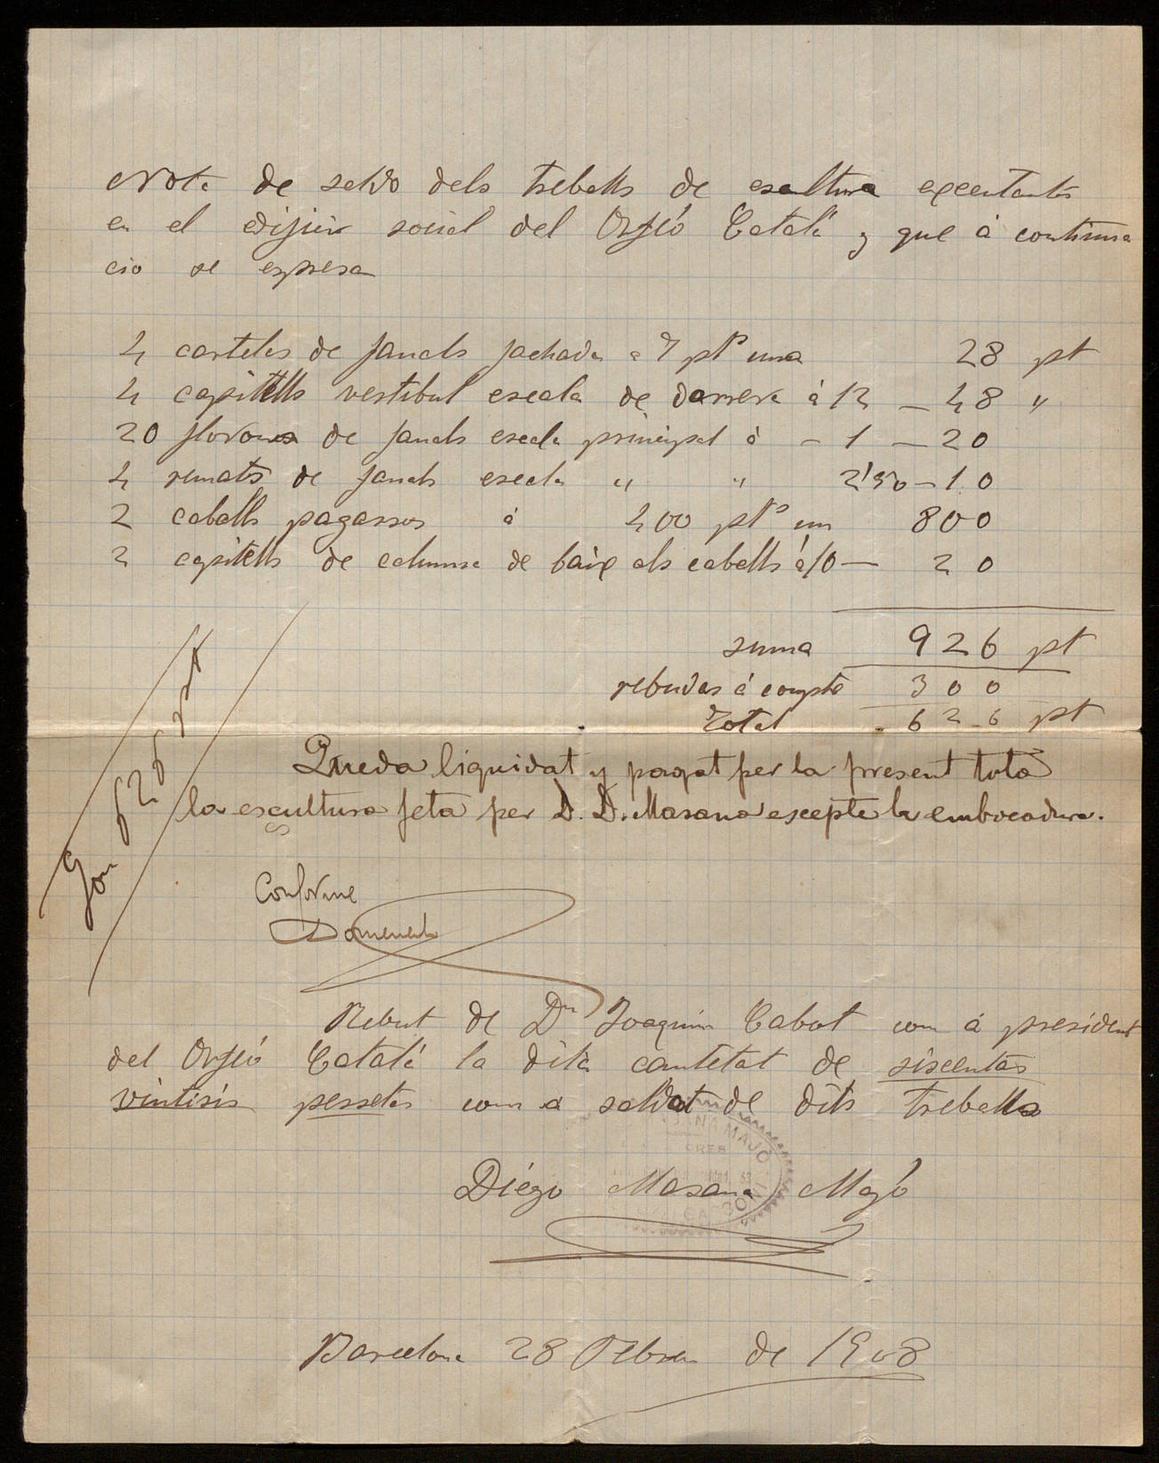 Nota de saldo dels treballs de escultura executants
en el edifici social del Orfeó Catalá y que á continua
cio se expresa
4 carteles de fanals fachada a 7 pts una 28 pt
4 capitells vestibul escala de darrera á 12 — 48 "
20 florons de fanals escala principal á — 1 — 20
4 remats de fanals escala " " 2'50 — 10
2 caballs pagassos á 400 pts un 800
2 capitells de columna de baix als caballs á 10 — 20
suma 926 pt
rebudas á compte 300
Total 626 pt
Son 626 pts
Queda liquidat y pagat per la present tota
la escultura feta per D. D. Masana escepte la embocadura.
Conforme
Domenech
Rebut de Dn Joaquim Cabot com á president
del Orfeó Catalá la dita cantitat de siscentas
vintisis pessetas com a saldat de dits treballs
Diégo Masana Majó
Barcelona 28 Febrer de 1908